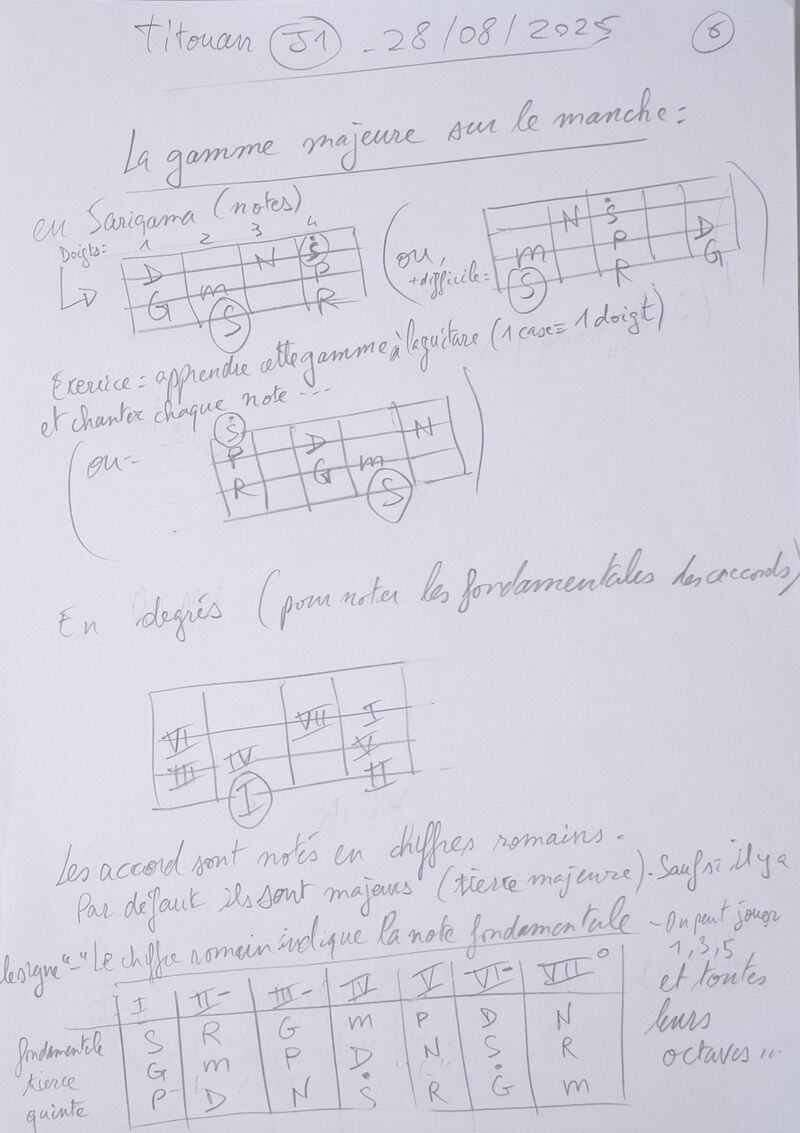 Titouan J1 - 28/08/2025 6
La gamme majeure sur le manche :
en Sarigama (notes)
Doigts : 1 2 3 4
D N Ṡ
G m P
S R
(ou, + difficile =
N Ṡ
m P D
S R G
)
Exercice = apprendre cette gamme à la guitare (1 case = 1 doigt)
et chanter chaque note ...
(ou -
Ṡ
P D N
R G m
S
)
En degrés (pour noter les fondamentales des accords)
VI VII I
III IV V
I II
Les accord sont notés en chiffres romains.
Par défaut ils sont majeurs (tierce majeure). Sauf si il y a
le signe "-" Le chiffre romain indique la note fondamentale - On peut jouer
1, 3, 5
et toutes
leurs
octaves ...
I II- III- IV V VI- VII°
fondamentale S R G m P D N
tierce G m P D N Ṡ R
quinte P D N Ṡ R Ġ m